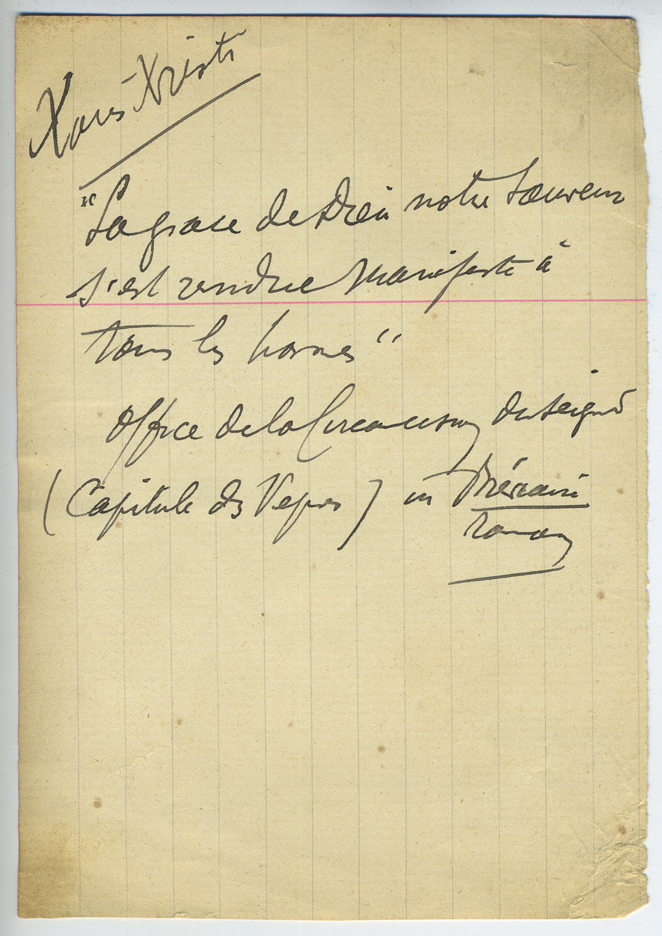 Xaris Xristi
"La grace de Dieu notre Sauveur
s'est rendue manifeste à
tous les homes"
Office de la Circoncision du Seigneur
(Capitule des Vepres) in Bréviaire
romain